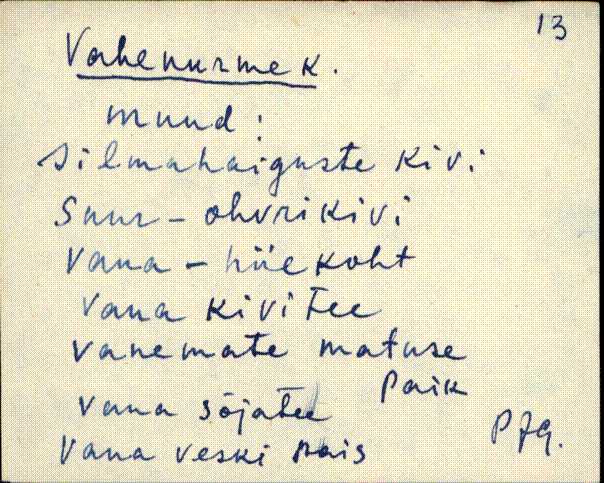 13
Vahenurme k.
muud:
Silmahaiguste kivi
Suur - ohvrikivi
Vana - hiiekoht
Vana kivitee
vanemate matuse
paik
vana sõjatee
Vana veski pais